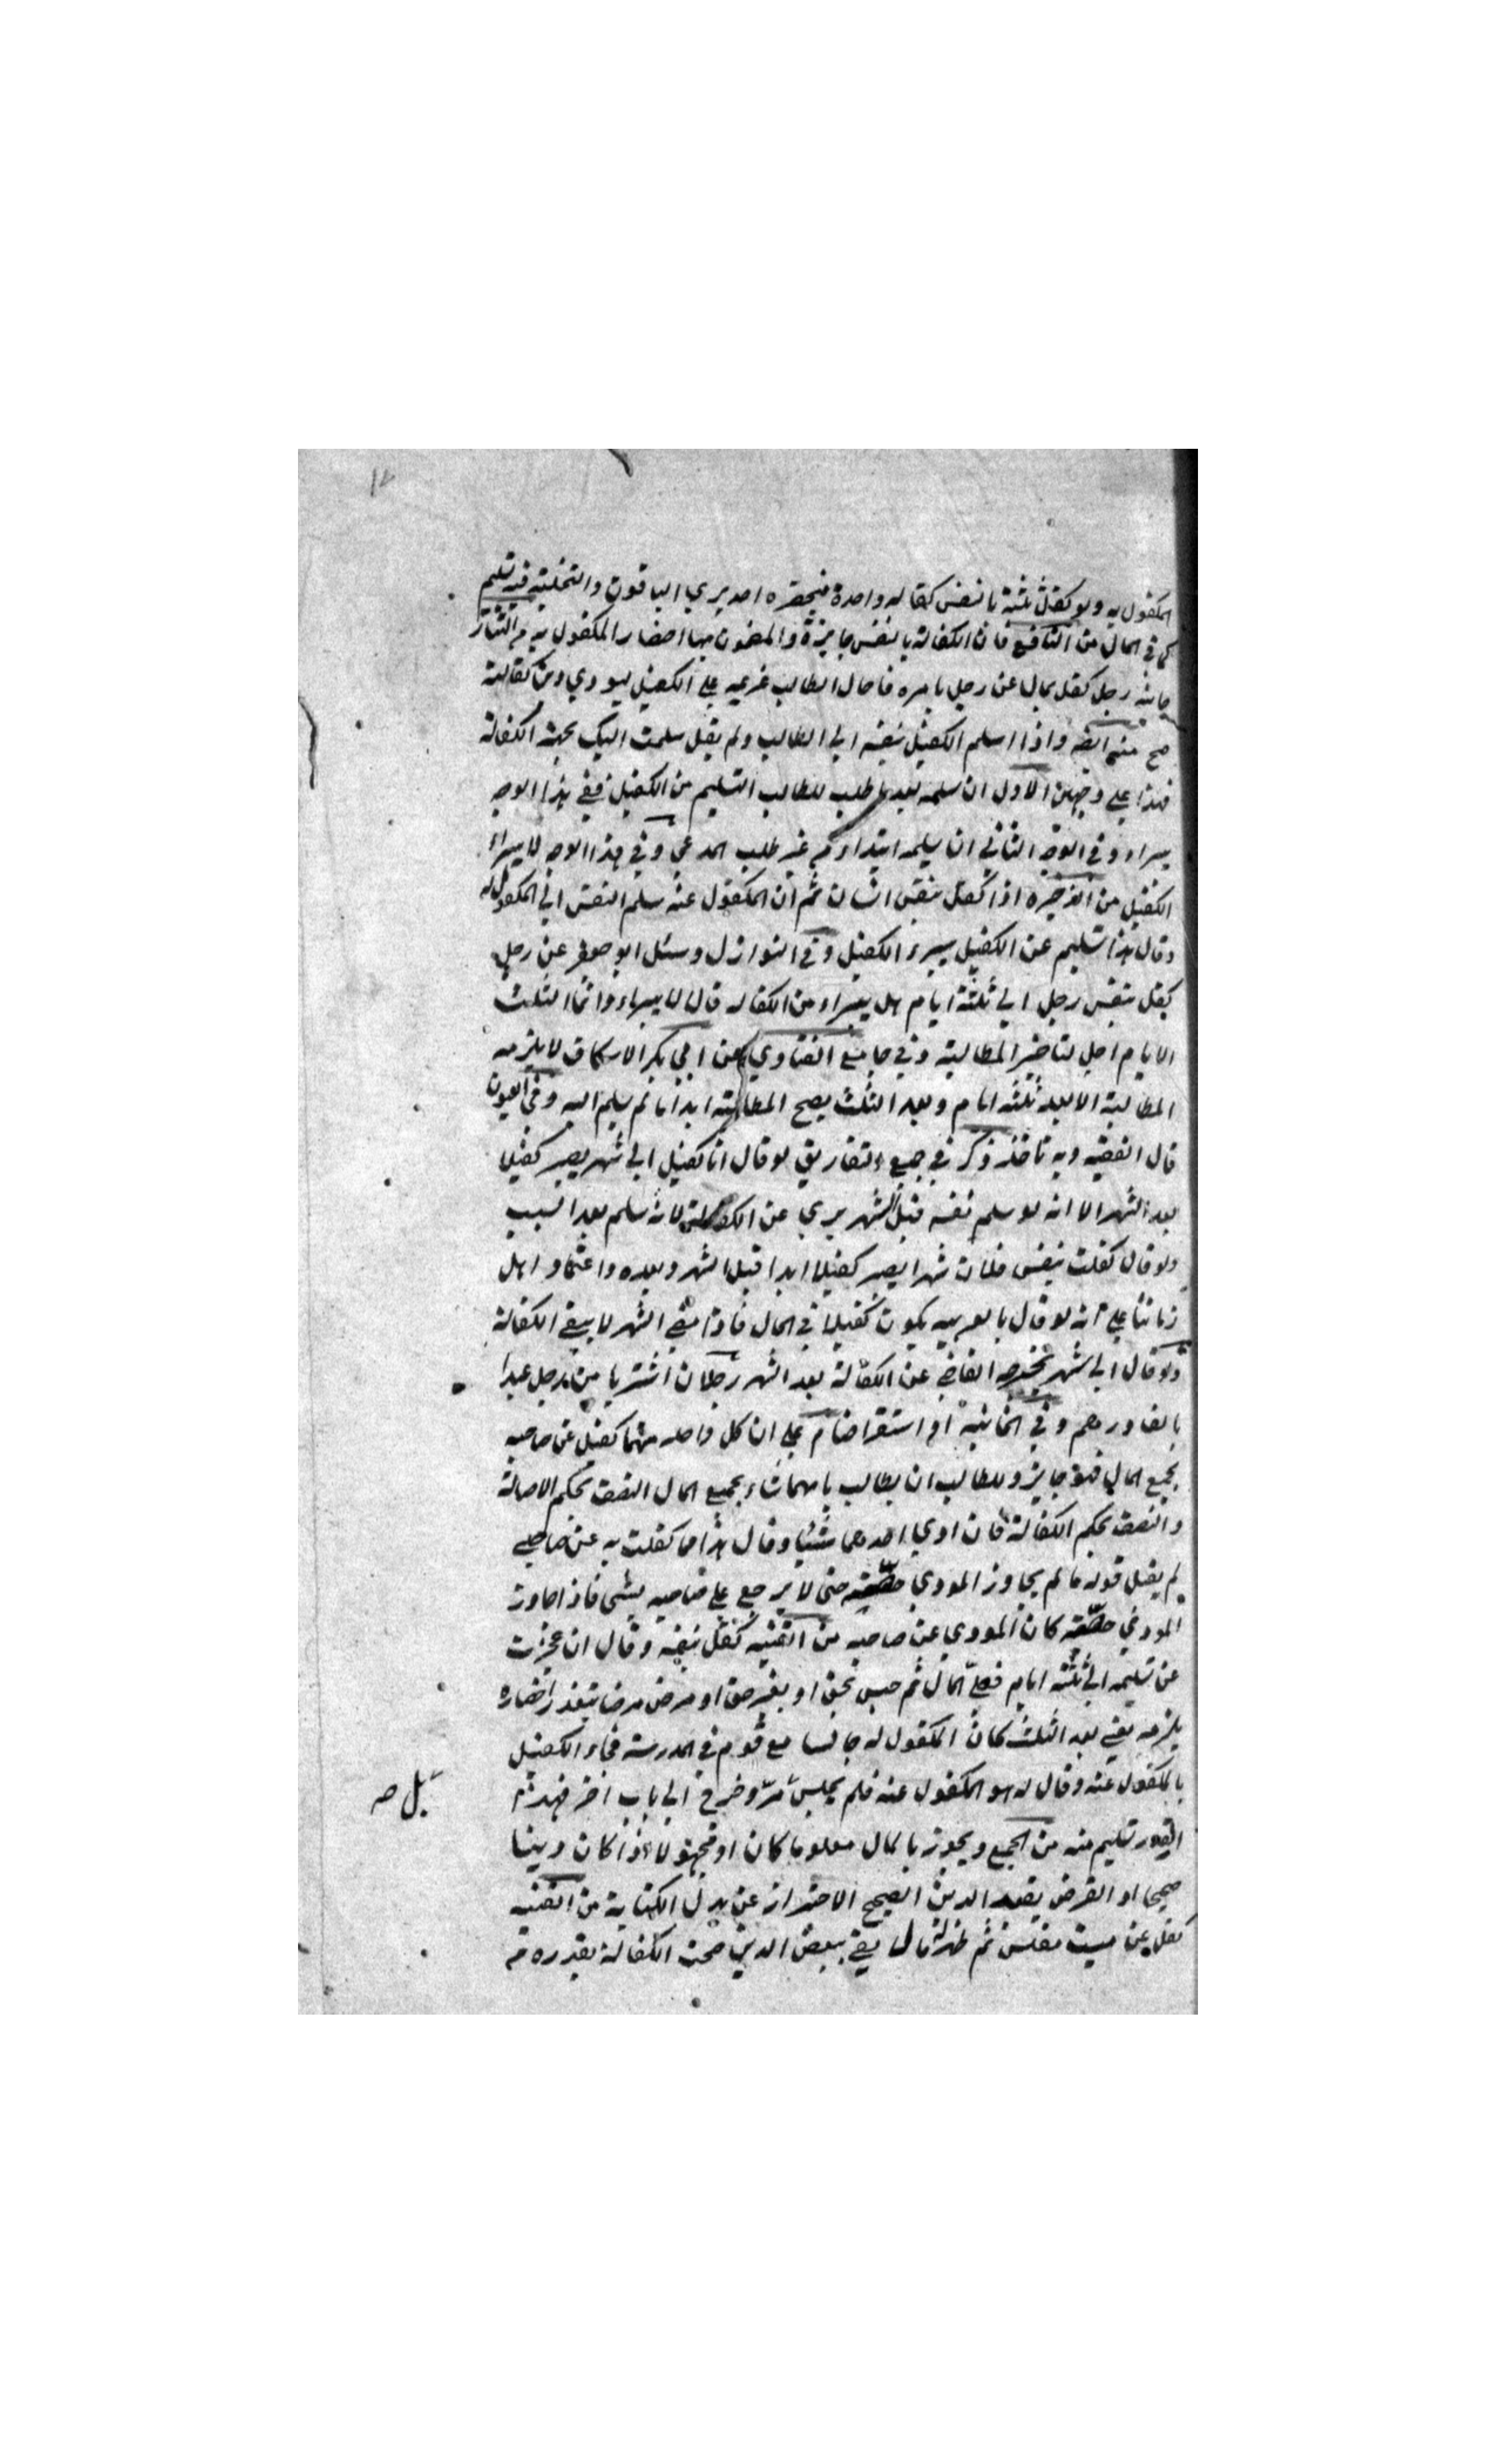 المكفول به ولو كفل ثلثة بالنفس كفاله واحدة فيحضره احد بري الباقون والتخلية فيه تسليم
كما في المال من النافع فان الكفالة بالنفس جايزة والمضمون بها احضار المكفول به من التتار
خانيه رجل كفل بمال عن رجل بامره فاحال الطالب غريمه علي الكفيل ليودي من كفالته
صح منه واذا اسلم الكفيل نفسه الي الطالب ولم يقل سلمت اليك بجهة الكفالة
فهذا علي وجهين الاول ان سلمه بعد طلب الطالب التسليم من الكفيل ففي هذا الوجه
يبراء وفي الوجه الثاني ان يسلمه ابتداء من غير طلب المدعي وفي هذا الوجه لا يبراء
الكفيل من الذخيره اذا كفل بنفس انسان ثم ان المكفول عنه سلم النفس الي المكفول له
وقال هذا تسليم عن الكفيل يبرء الكفيل وفي النوازل وسئل ابو جعفر عن رجل
كفل بنفس رجل الي ثلثة ايام هل يبراء من الكفاله قال لا يبراء وانما الثلث
الايام اجل لتاخير المطالبة وفي جامع الفتاوي عن ابي بكر الاسكاف لا يلزمه
المطالبة الا بعد ثلثه ايام وبعد الثلث يصح المطالبة ابدا ما لم يسلم اليه وفي العيون
قال الفقيه وبه ناخذ ذكر في جمع التفاريق لو قال انا كفيل الي شهر يصير كفيلا
بعد الشهر الا انه لو سلم نفسه قبل الشهر بري عن الكفالة لانه سلم بعد السبب
ولو قال كفلت بنفس فلان شهرا يصير كفيلا ابدا قبل الشهر وبعده واعتماد اهل
زماننا علي انه لو قال بالعربيه يكون كفيلا في الحال فاذا مضي الشهر لا يبقي الكفالة
ولو قال الي شهر يخرجه القاضي عن الكفالة بعد الشهر رجلان اشتريا من رجل عبدا
بالف درهم وفي الخانيه او استقرضا علي ان كل واحد منهما كفيل عن صاحبه
بجميع المال فهو جايز وللطالب ان يطالب بايهما شاء بجميع المال النصف بحكم الاصالة
والنصف بحكم الكفالة فان ادي احدهما شيئا وقال هذا مما كفلت به عن صاحبي
لم يقبل قوله ما لم يجاوز المودي حصته حتي لا يرجع علي صاحبه بشي فاذا جاوز
المودي حصته كان المودي عن صاحبه من القنيه كفل بنفسه وقال ان عجزت
عن تسليمه الي ثلثة ايام فعلي المال ثم حبس بحق او بغير حق او مرض مرضا يتعذر احضاره
يلزمه يعني بعد الثلث كان المكفول له جالسا مع قوم في المدرسة فجاء الكفيل
بالمكفول عنه وقال له هو المكفول عنه فلم يجلس بل مر وخرج الي باب اخر فهذا
القدر تسليم منه من الجمع ويجوز بالمال معلوما كان او مجهولا اذا كان دينا
صحيحا او القرض بقيد الدين الصحيح الاحتراز عن بدل الكتابة من القنيه
كفل عن ميت مفلس ثم ظهر له مال يفي ببعض الدين صحت الكفالة بقدره من
بل صه